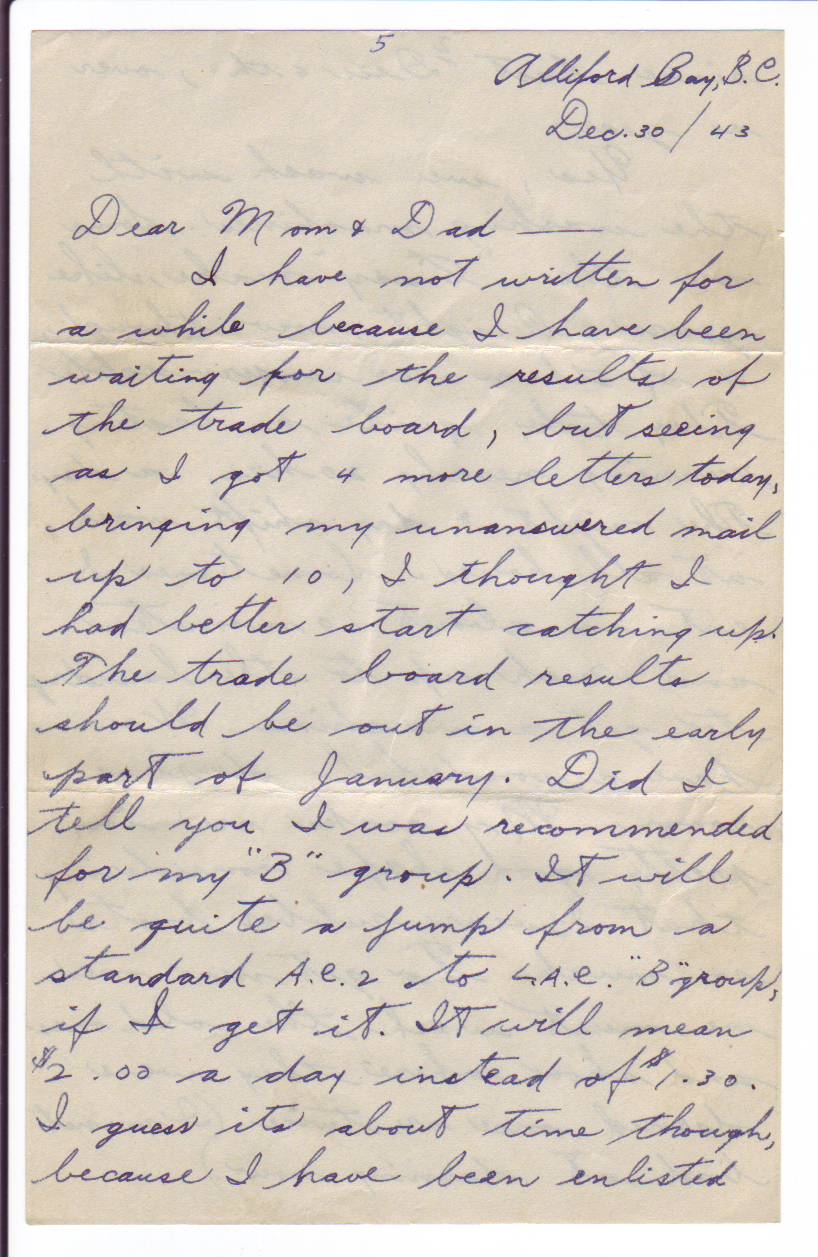 5
Alliford Bay, B.C.
Dec. 30 / 43
Dear Mom & Dad —
I have not written for
a while because I have been
waiting for the results of
the trade board, but seeing
as I got 4 more letters today,
bringing my unanswered mail
up to 10, I thought I
had better start catching up.
The trade board results
should be out in the early
part of January. Did I
tell you I was recommended
for my "B" group. It will
be quite a jump from a
standard A.C.2 to L.A.C. "B" group,
if I get it. It will mean
$2.00 a day instead of $1.30.
I guess its about time though,
because I have been enlisted